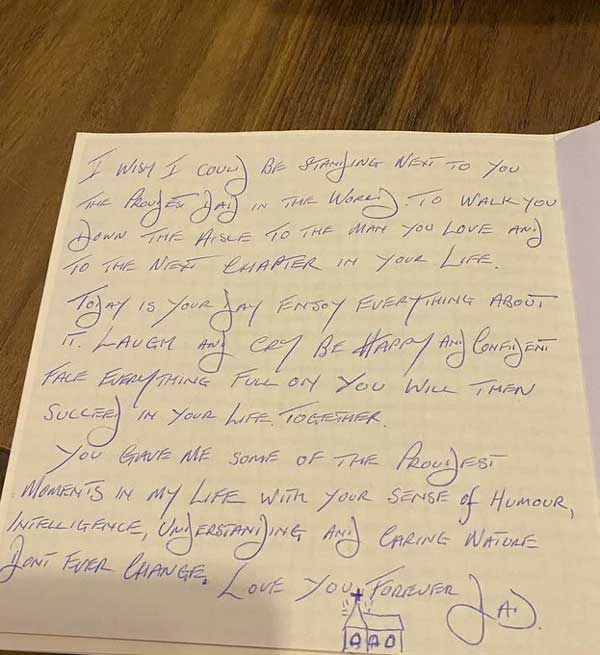 I WISH I COULD BE STANDING NEXT TO YOU
THE PROUDEST DAD IN THE WORLD. TO WALK YOU
DOWN THE AISLE TO THE MAN YOU LOVE AND
TO THE NEXT CHAPTER IN YOUR LIFE.
TODAY IS YOUR DAY ENJOY EVERYTHING ABOUT
IT. LAUGH AND CRY BE HAPPY AND CONFIDENT
FACE EVERYTHING FULL ON YOU WILL THEN
SUCCEED IN YOUR LIFE TOGETHER.
YOU GAVE ME SOME OF THE PROUDEST
MOMENTS IN MY LIFE WITH YOUR SENSE of HUMOUR,
INTELLIGENCE, UNDERSTANDING AND CARING NATURE
DONT EVER CHANGE. LOVE YOU FOREVER DAD.